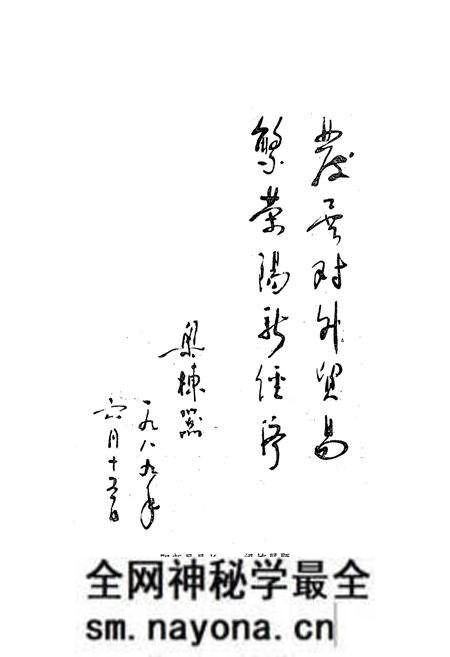 發展对外贸易
繁荣陽新經济
梁棟
一九八九年
六月十五日
全网神秘学最全
sm.nayona.cn